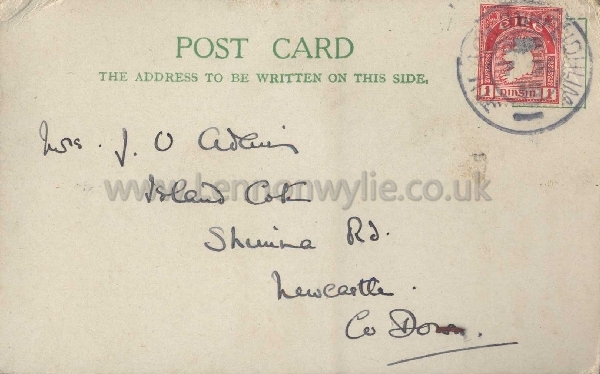 POST CARD
THE ADDRESS TO BE WRITTEN ON THIS SIDE.
éire
1 PINGIN 1
Mrs. J. O Adkins
Island Cot
Shimna Rd.
Newcastle.
Co Down.
www.Lennonwylie.co.uk